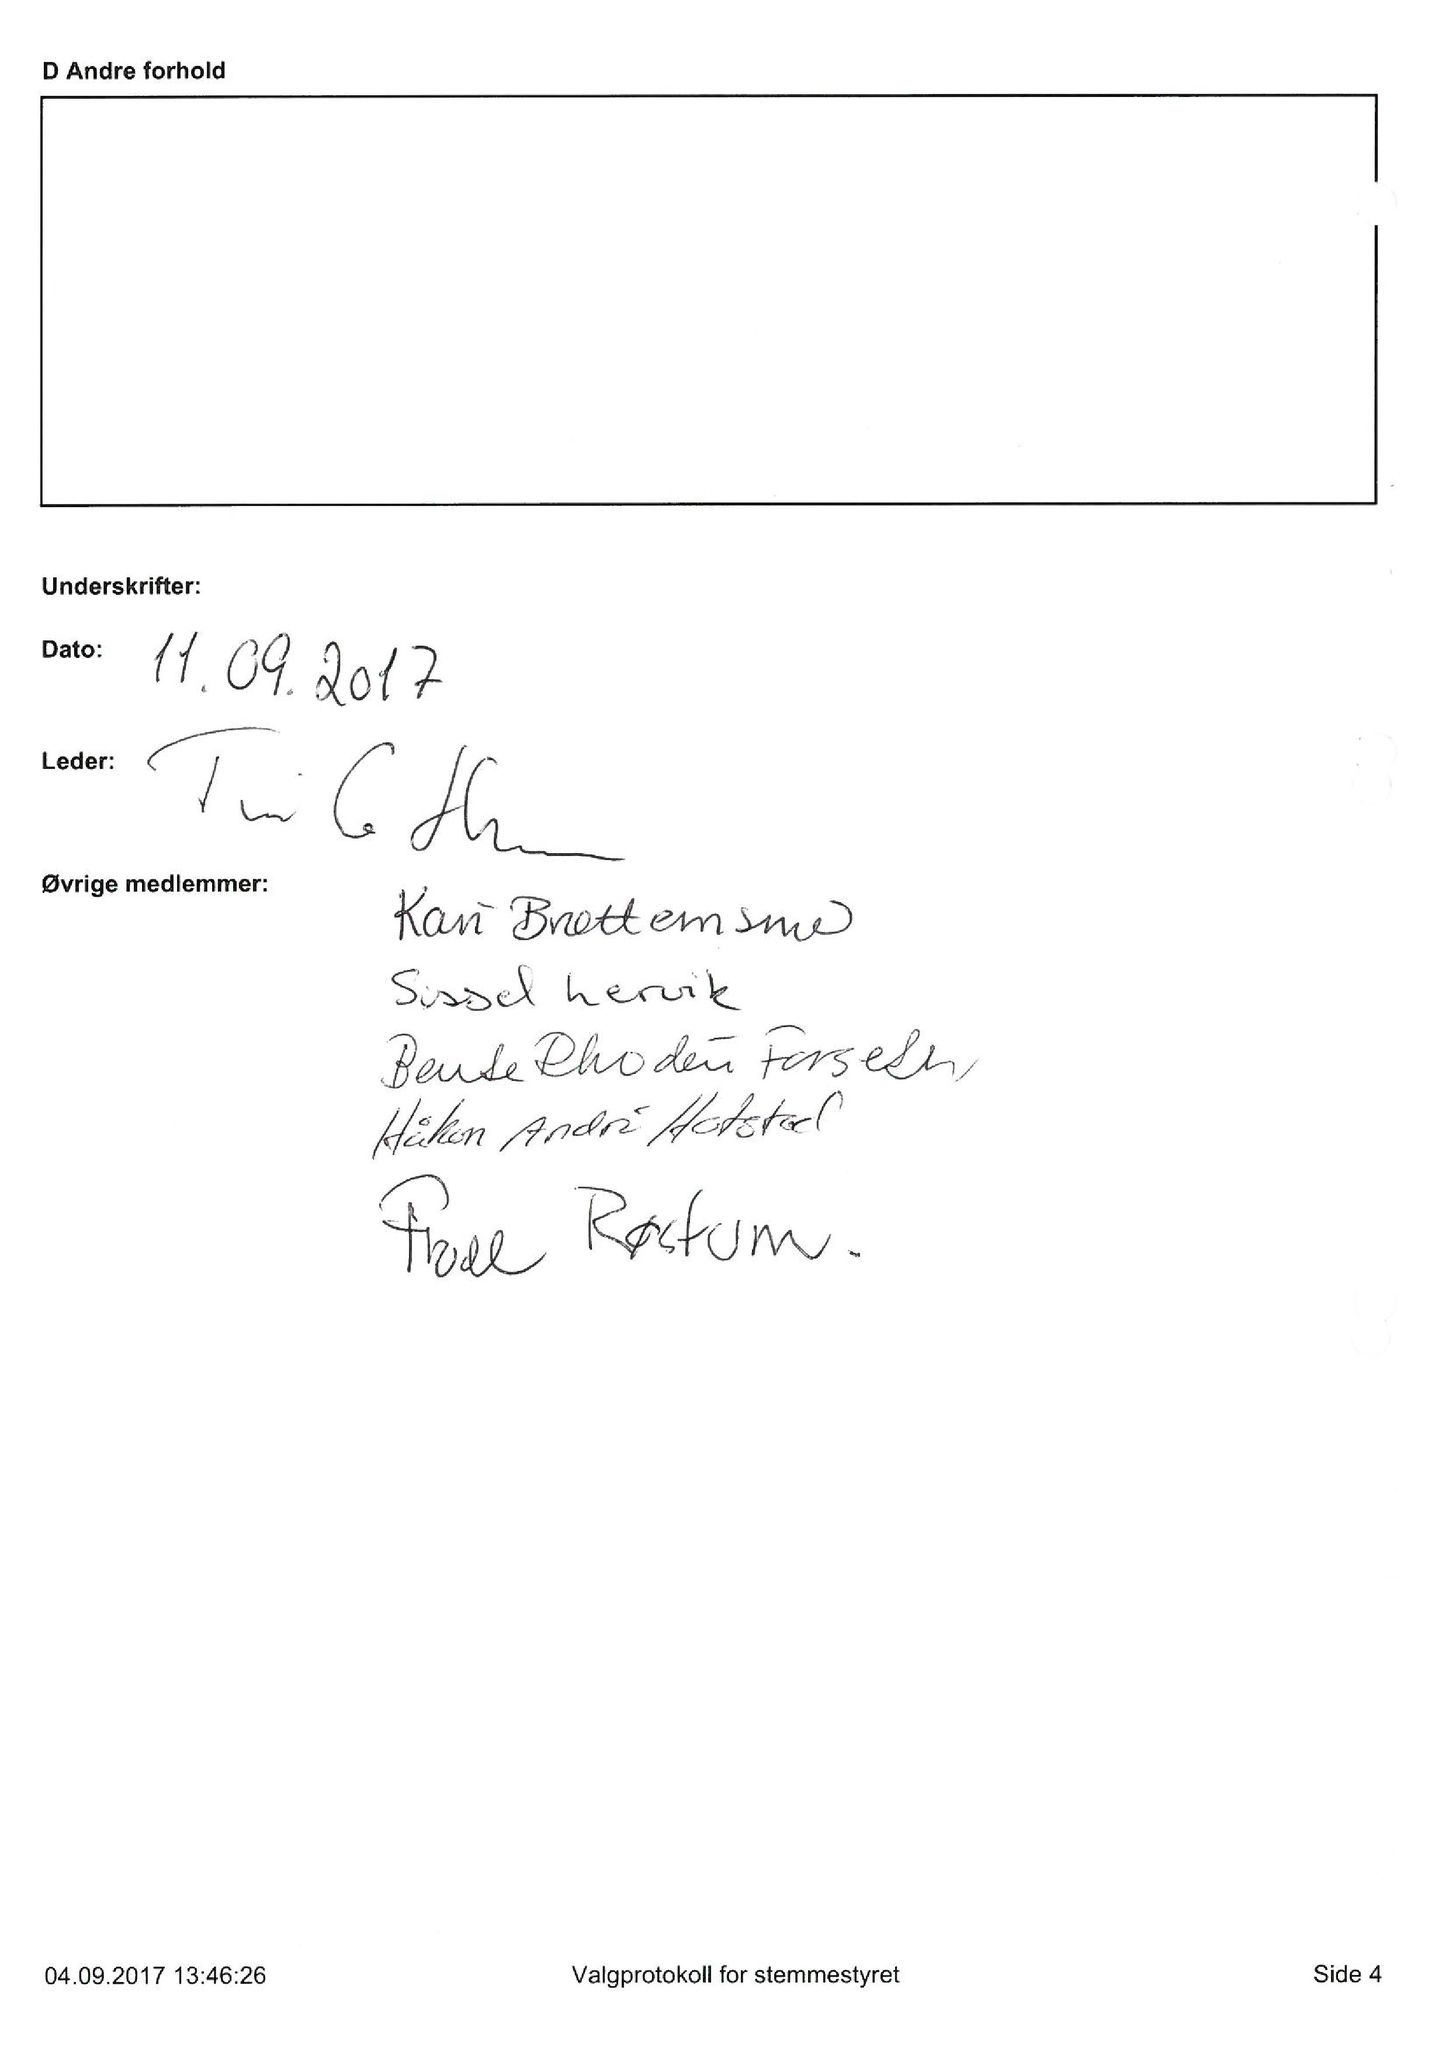 D Andre forhold
Underskrifter:
Dato: 11.09.2017
Leder:
Øvrige medlemmer:
Kari
Sissel Lervik
Bente Rhoden Forseth
Håkon André Hofstad
Frode Røstum.
04.09.2017 13:46:26 Valgprotokoll for stemmestyret Side 4